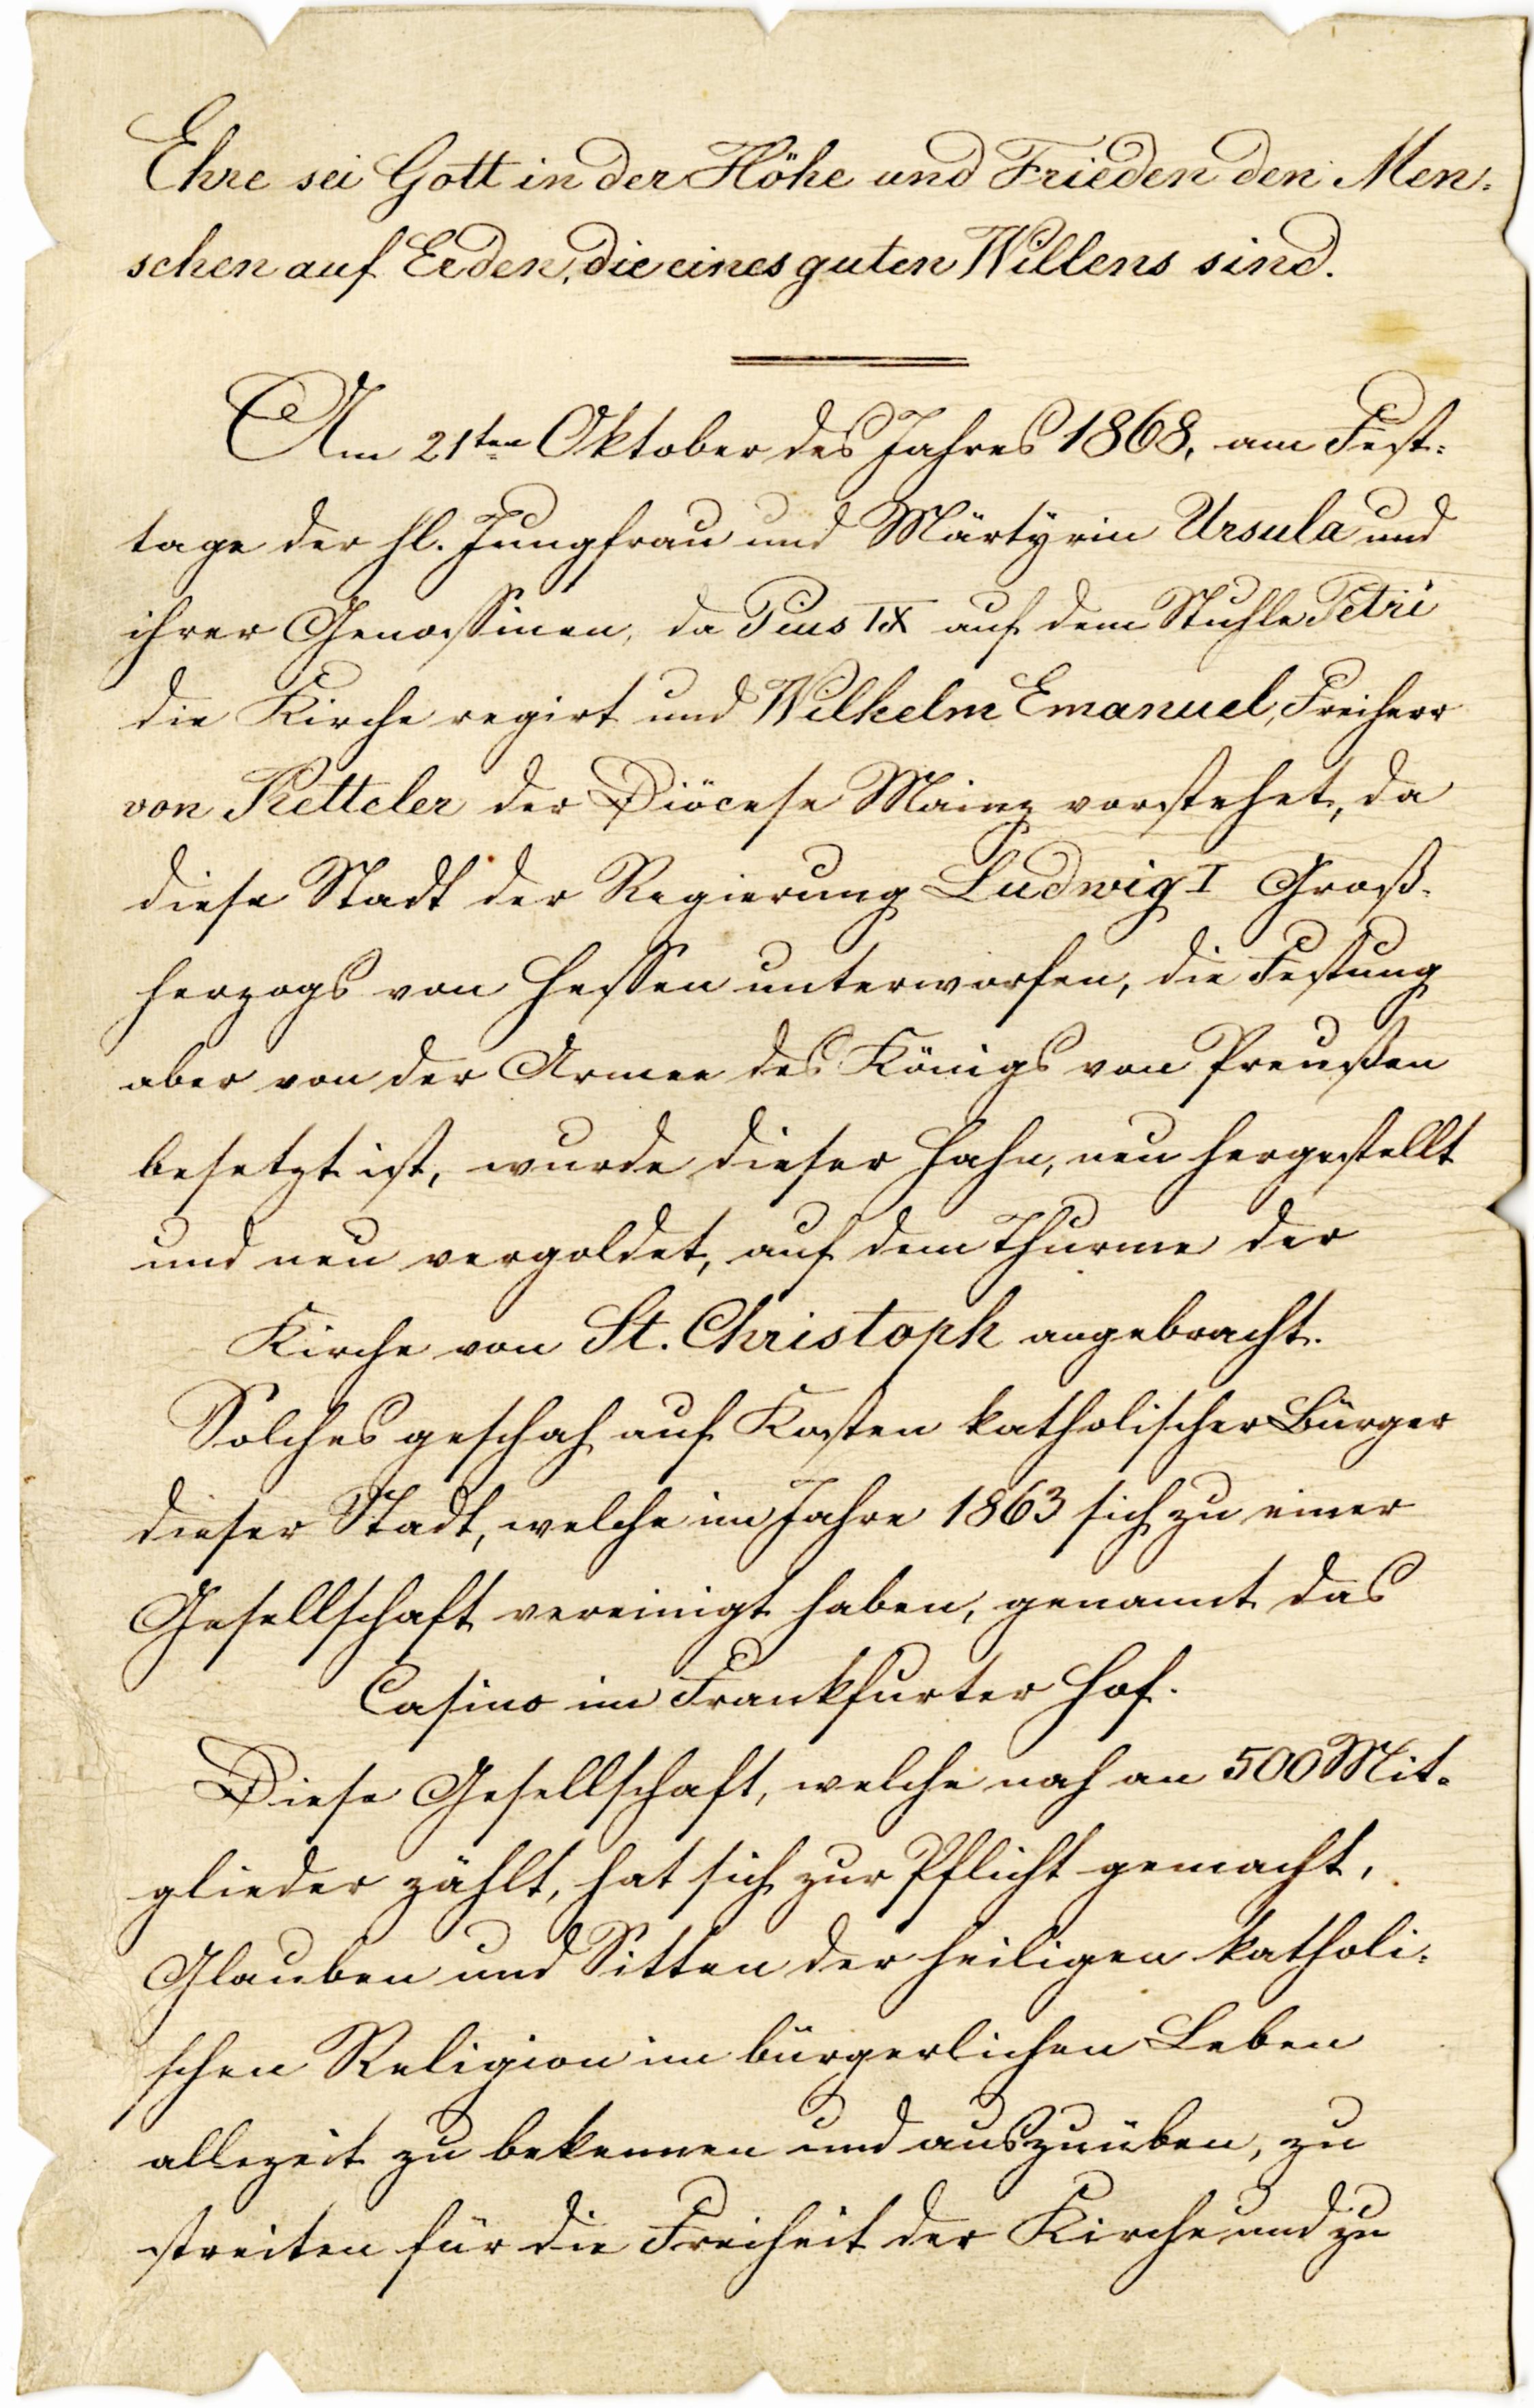 Ehre sei Gott in der Höhe und Frieden den Men-
schen auf Erden, die eines guten Willens sind.
Am 21ten Oktober des Jahres 1868, am Fest-
tage der hl. Jungfrau und Märtyrin Ursula und
ihrer Genossinen, da Pius IX auf dem Stuhle Petri
die Kirche regirt und Wilhelm Emanuel, Freiherr
von Ketteler der Diöcese Mainz vorstehet, da
diese Stadt der Regierung Ludwig I Groß-
herzogs von Hessen unterworfen, die Festung
aber von der Armee des Königs von Preußen
besetzt ist, wurde dieser Hahn, neu hergestellt
und neu vergoldet, auf dem Thurme der
Kirche von St. Christoph angebracht.
Solches geschah auf Kosten katholischer Bürger
dieser Stadt, welche im Jahre 1863 sich zu einer
Gesellschaft vereinigt haben, genannt das
Casino im Frankfurter Hof.
Diese Gesellschaft, welche nah an 500 Mit-
glieder zählt, hat sich zur Pflicht gemacht,
Glauben und Sitten der heiligen katholi-
schen Religion im bürgerlichen Leben
allezeit zu bekennen und auszuüben, zu
streiten für die Freiheit der Kirche und zu